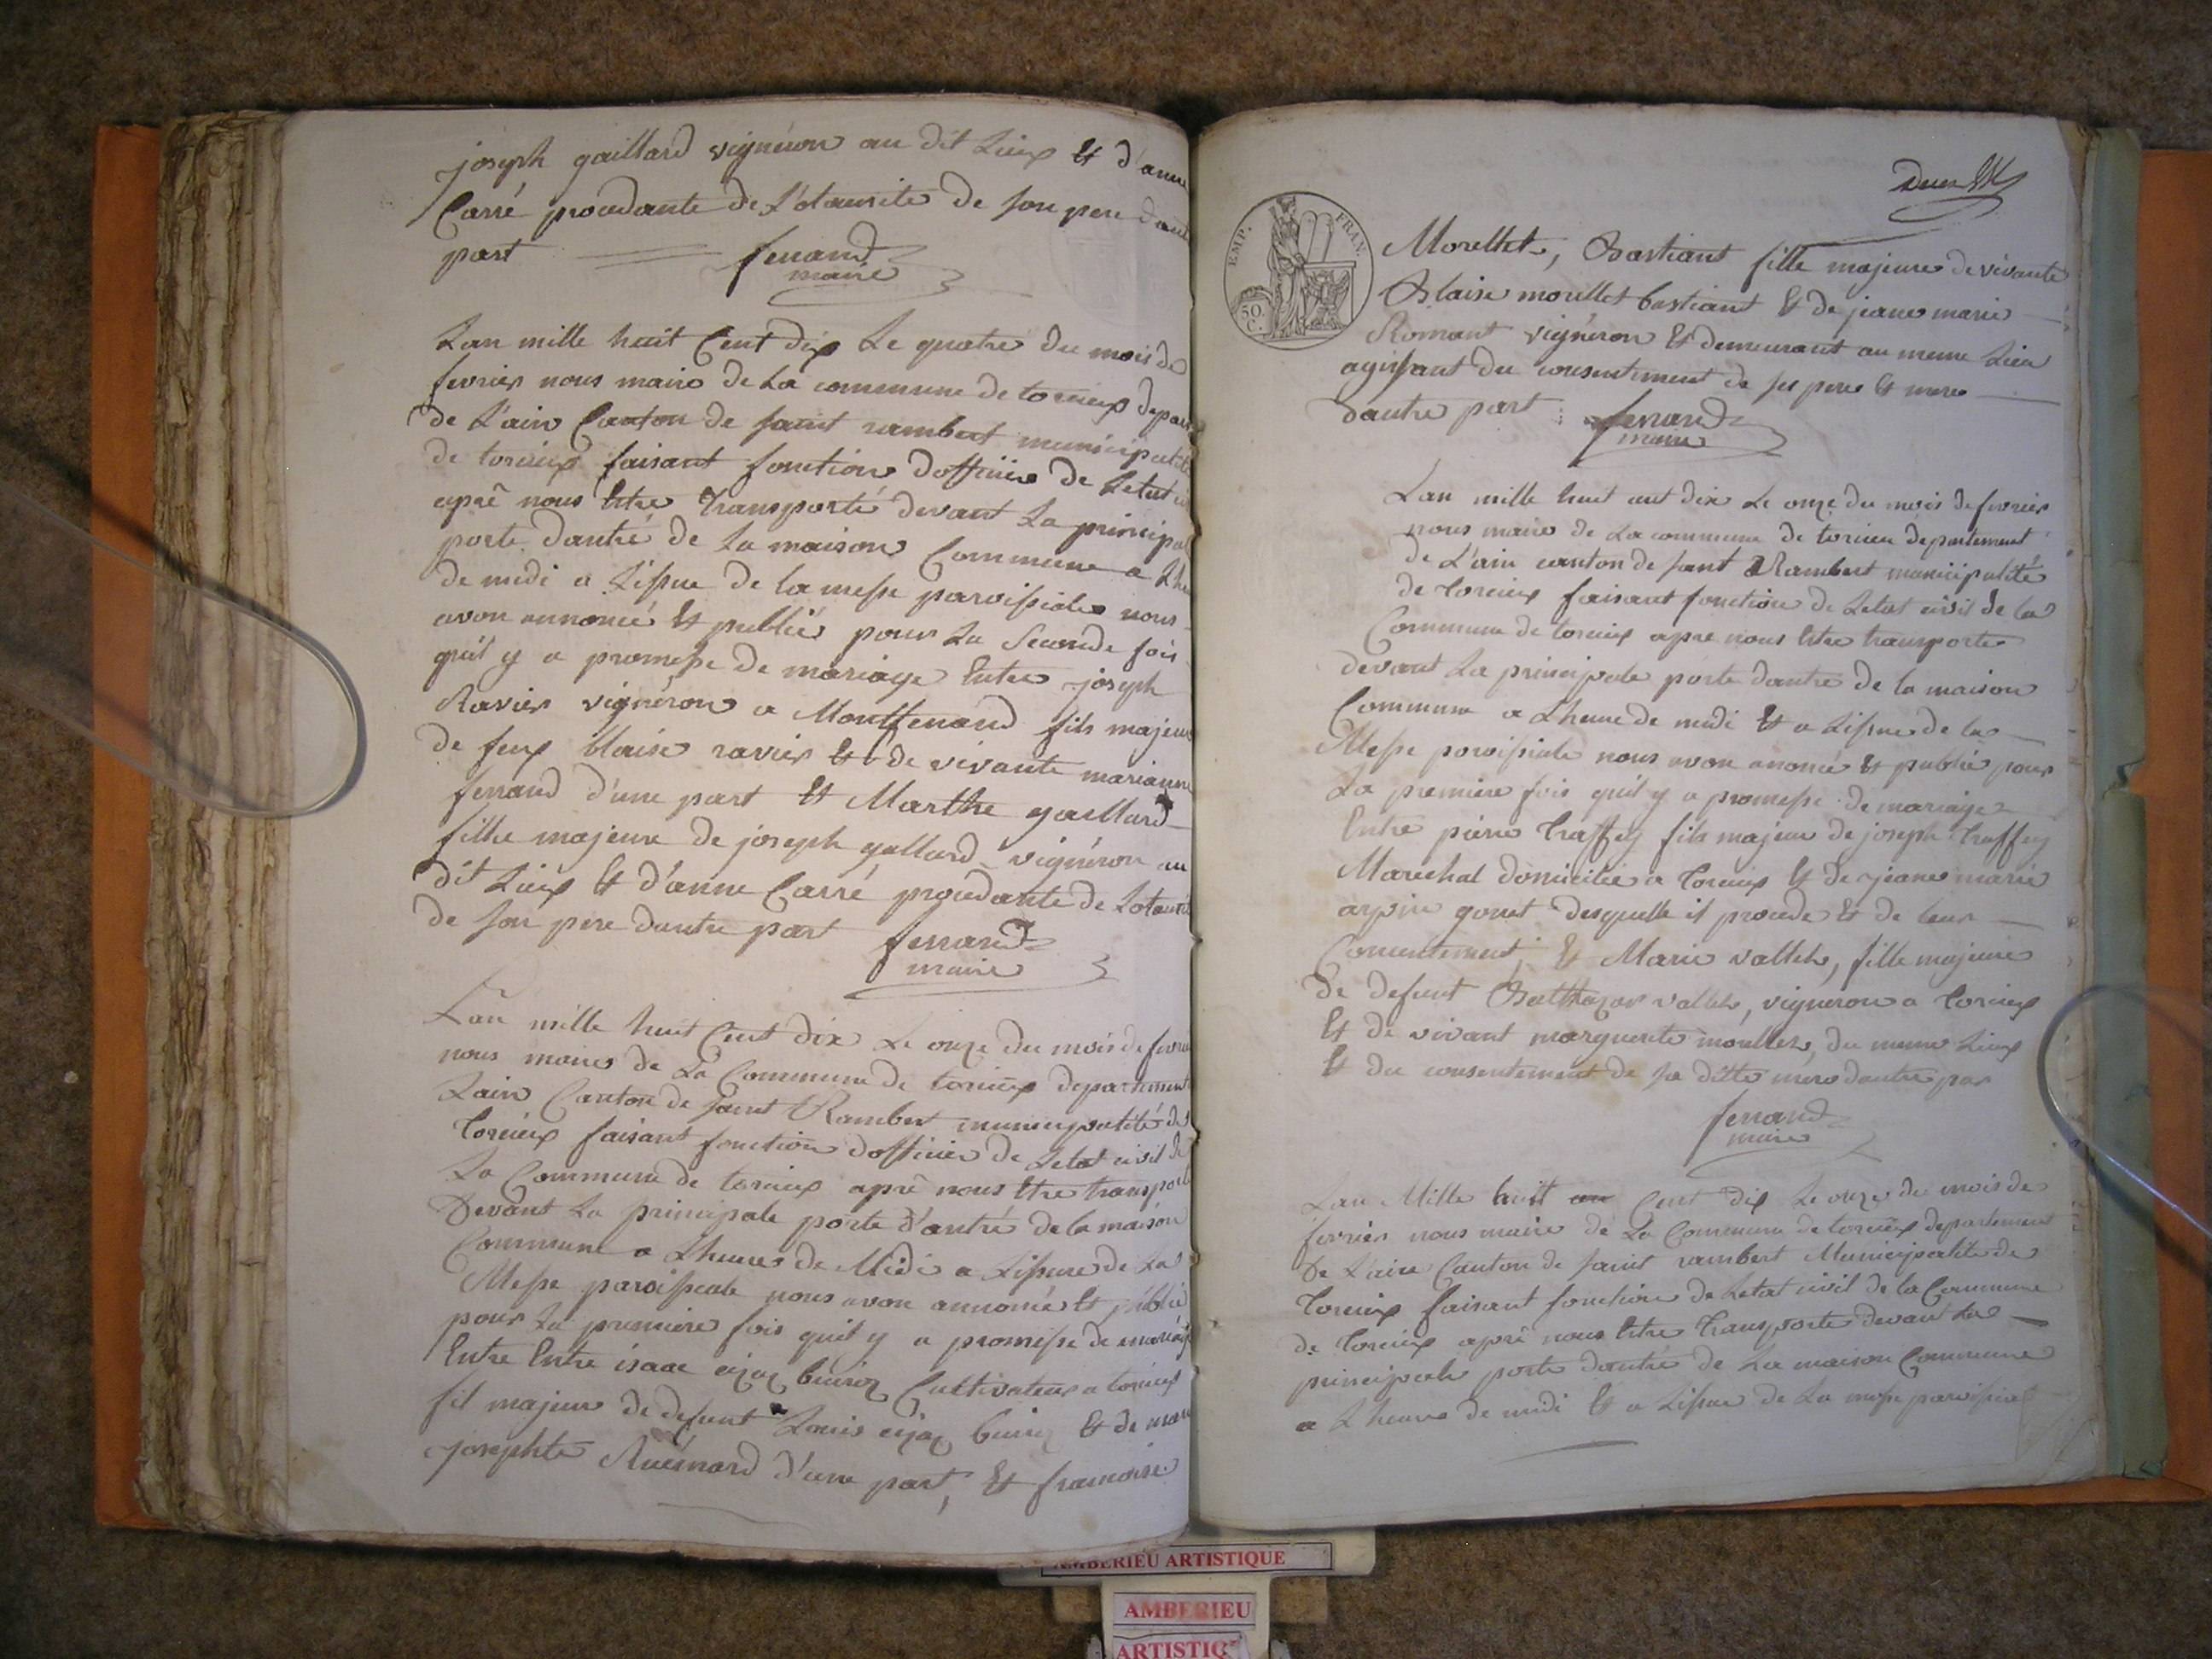 joseph gaillard vignéron au dit Lieux Et d'anne
Carré procedante de L'otaurite de son pere dautre
part ferrand
maire
Lan mille huit Cent dix Le quatre du mois de
fevrier nous maire de La commune de torcieux depar
de L'ain Canton de saint rambert municipalité
de torcieux faisant fonction dofficier de Letat
aprê nous Etre transporté devant La principal
porte dantré de La maison Commune a Lhe
de midi a Lissue de la messe paroissiale nous
avon annoncé Et publié pour La Seconde fois
quil y a promesse de mariage Entre joseph
Ravier vignéron a Montferrand fils majeur
de feux blaise ravier Et de vivante marianne
ferrand d'une part Et Marthe gaillard
fille majeure de joseph gallard vignéron au
dit Lieux Et d'anne Carré procedante de Lotaurit
de son pere dautre part ferrand
maire
Lan mille huit Cent dix Le onze du mois de fevrier
nous maire de La Commune de torcieux departement
Lain Canton de saint Rambert municipalité de
torcieux faisant fonction dofficier de Letat civil de
La Commune de torcieux aprê nous Etre transporté
Devant La principale porte d'antré de la maison
Commune a Lheure de Midi a Lissue de La
Messe paroissiale nous avon annoncé Et publié
pour La premiere fois quil y a promesse de mariage
Entre Entre isaac Cultivateur a torcieux
fil majeur de defunt Louis Et de
josephte d'une part, Et francoise
EMP. FRAN.
50.
C.
Morellet, Bastiant fille majeure de vivante
Blaise morellet bastiant Et de jeane marie
Romant vignéron Et demeurant au meme Lieu
agissant du consentement de ses pere Et mere
dautre part ferrand
maire
Lan mille huit cent dix Le onze du mois de fevrier
nous maire de La commune de torcieu departement
de L'ain canton de sant Rambert municipalité
de torcieux faisant fonction de Letat civil de la
Commune de torcieux apre nous Etre transporte
devant La principale porte dantre de la maison
Commune a Lheure de midi Et a Lissue de la
Messe paroissiale nous avon anoncé Et publié pour
La premiere fois quil y a promesse de mariage
Entre pierre traffey fils majeur de joseph traffey
Marechal domicilié a torcieux Et de jeane marie
arpin gonet desquelle il procede Et de leur
Consentement; Et Marie vallet, fille majeure
de defunt Balthazar vallet, vigneron a torcieux
Et de vivant marguerite morellet, du meme Lieux
Et du consentement de sa ditte mere dautre par
ferrand
maire
Lan Mille huit Cent dix Le onze du mois de
fevrier nous maire de La Commune de torcieux departement
De L'ain Canton de saint rambert Municipalité de
torcieux faisant fonction de Letat civil de la Commune
de torcieux aprê nous Etre transporté devant La
principale porte dantré de La maison Commune
a Lheure de midi Et a Lissue de La messe paroissial
AMBERIEU ARTISTIQUE
AMBERIEU
ARTISTIQ